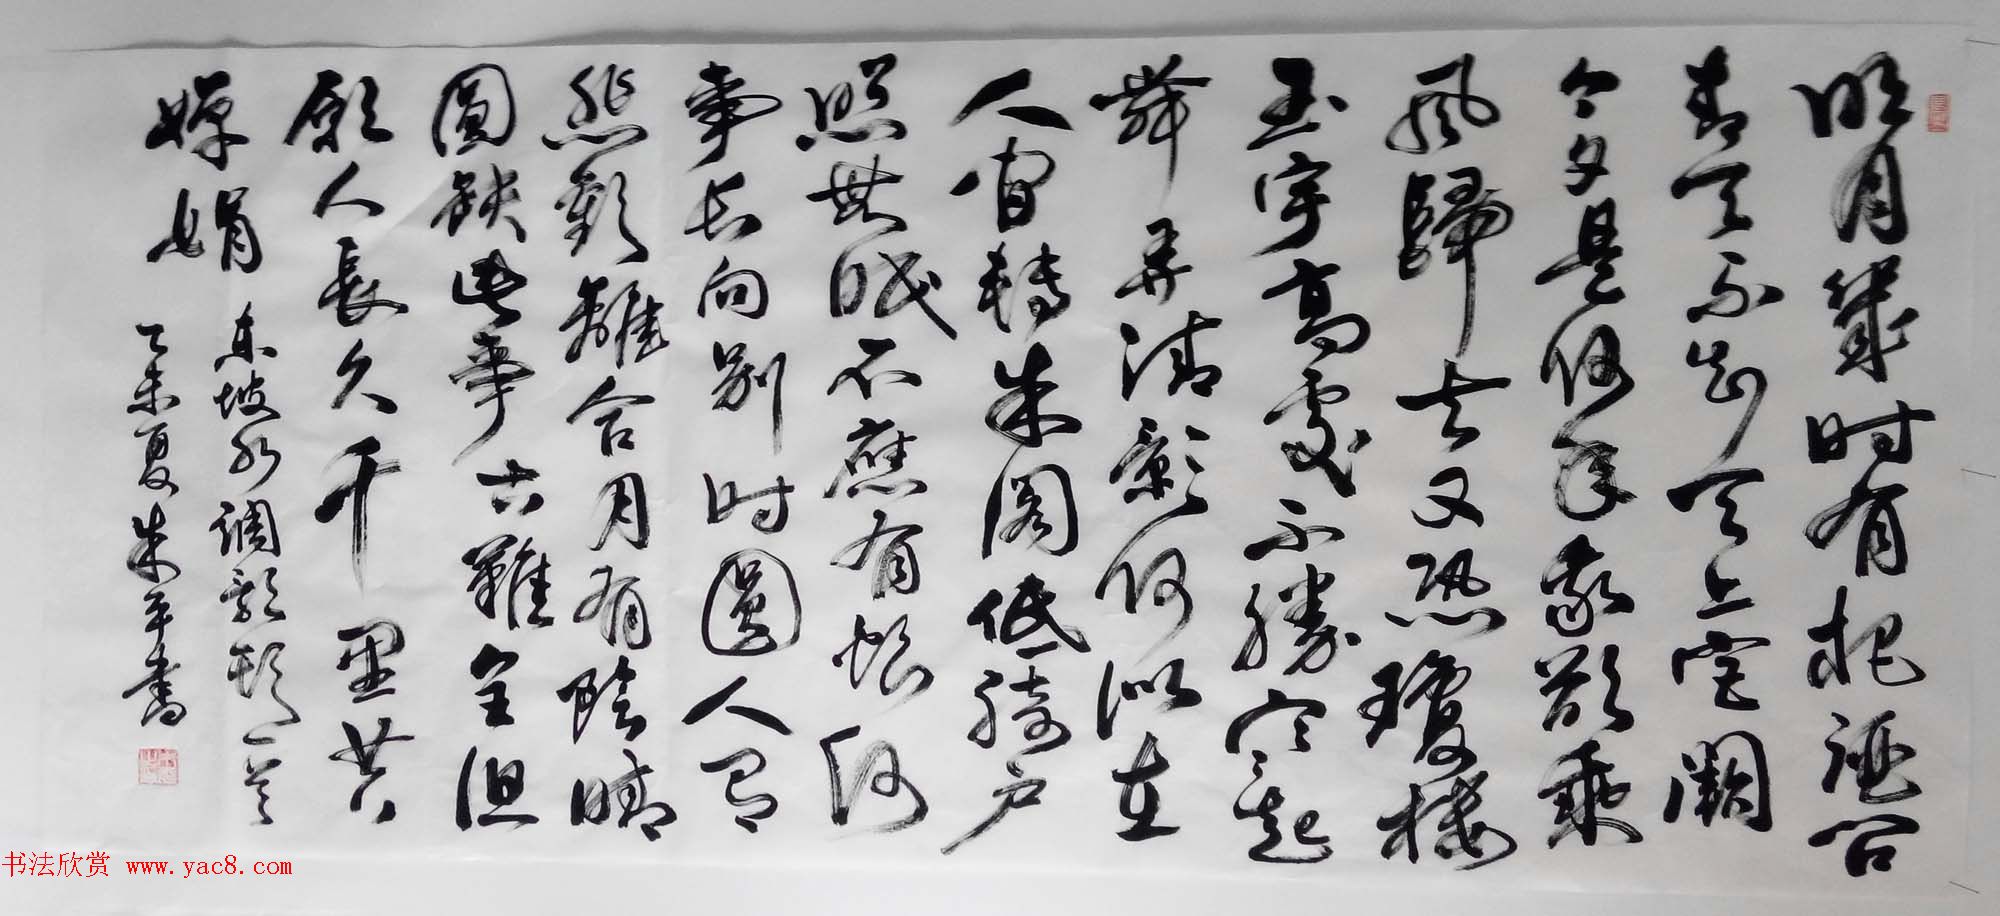 明月幾时有把酒问
青天不知天上宫阙
今夕是何年我欲乘
風歸去又恐瓊楼
玉宇高處不勝寒起
舞弄清影何似在
人间轉朱阁低绮户
照無眠不應有恨何
事长向别时圆人有
悲歡離合月有陰晴
圓缺此事古難全但
願人長久千里共
嬋娟 东坡水调歌頭一首
乙未夏朱平書
书法欣赏 www.yac8.com